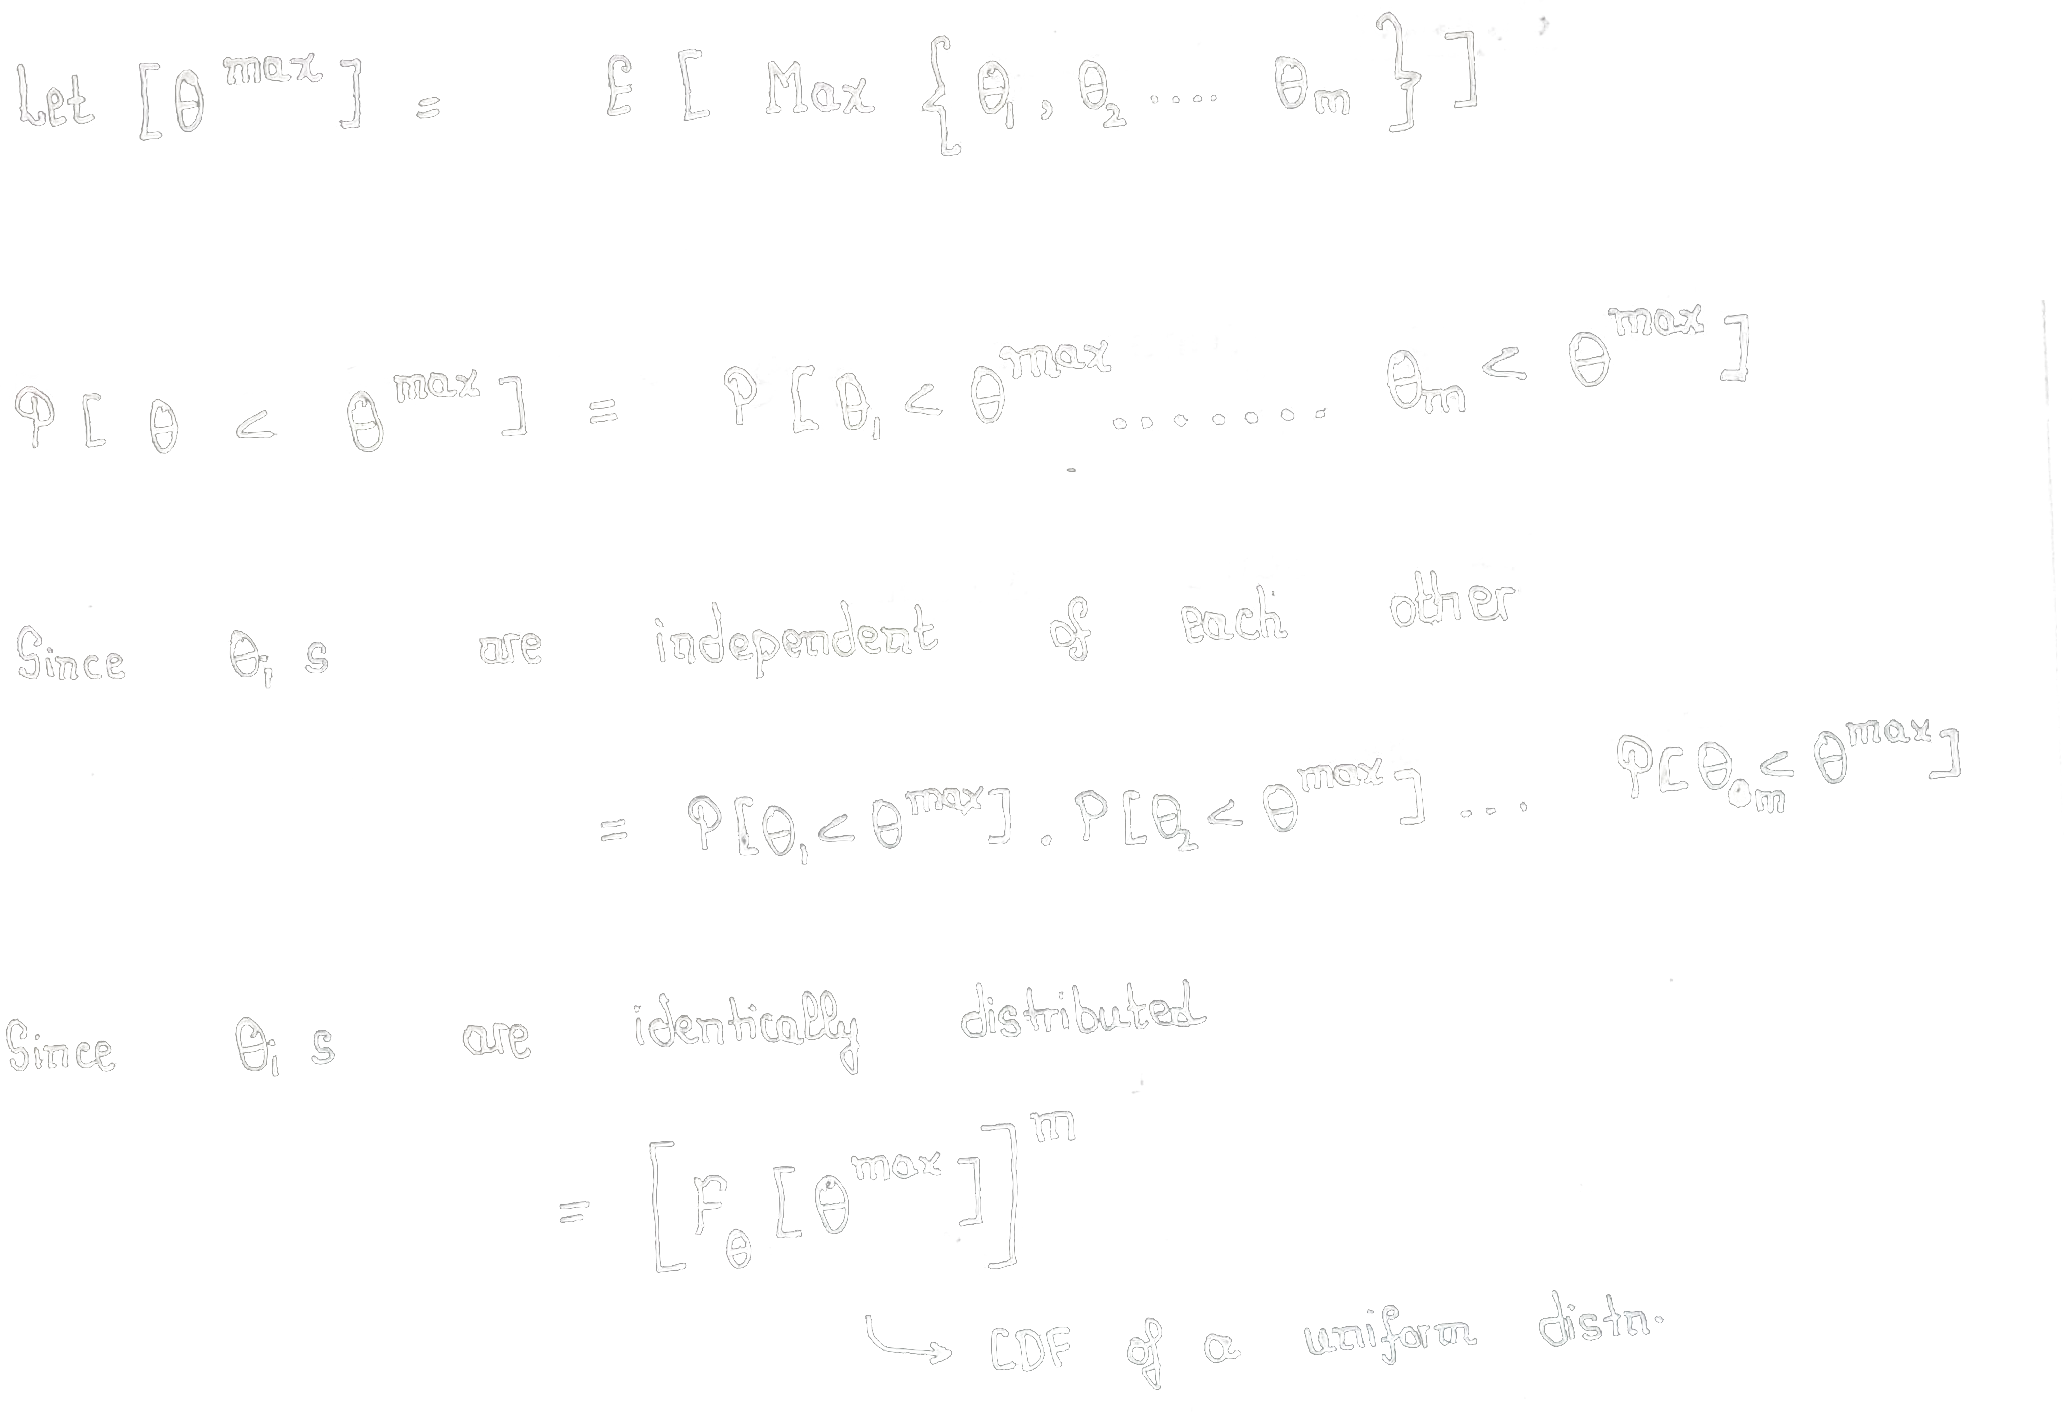 Let [θ^max] = E [ Max { θ₁, θ₂ .... θₘ } ]
P [ θ < θ^max ] = P [ θ₁ < θ^max ........ θₘ < θ^max ]
Since θᵢ s are independent of each other
= P [θ₁ < θ^max] . P [θ₂ < θ^max] ... P[θₘ < θ^max]
Since θᵢ s are identically distributed
= [ F_θ [ θ^max ] ]^m
→ CDF of a uniform distn.